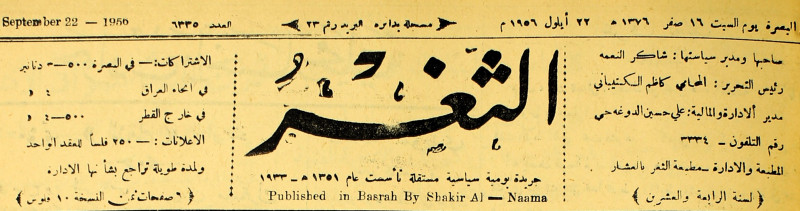 البصرة يوم السبت ١٦ صفر ١٣٧٦ هـ ٢٢ أيلول ١٩٥٦ م
مسجلة بدائرة البريد رقم ٢٣
العدد ٦٣٣٥
September 22 — 1956
صاحبها ومدير سياستها : شاكر النعمه
رئيس التحرير : المحامي كاظم السكتيباني
مدير الادارة والمالية : علي حسين الدوغه جي
رقم التلفون – ٣٣٣٤
المطبعة والادارة – مطبعة الثغر بالعشار
﴿ السنة الرابعة والعشرين ﴾
الثغر
جريدة يومية سياسية مستقلة تأسست عام ١٣٥١ هـ – ١٩٣٣
Published in Basrah By Shakir Al — Naama
الاشتراكات : – في البصرة ٥٠٠–٣ دنانير
في انحاء العراق ٤ د
في خارج القطر ٥٠٠–٤ د
الاعلانات : – ٢٥٠ فلساً للعقد الواحد
ولمدة طويلة تراجع بشأنها الادارة
﴿ ٦ صفحات ثمن النسخة ١٠ فلوس ﴾